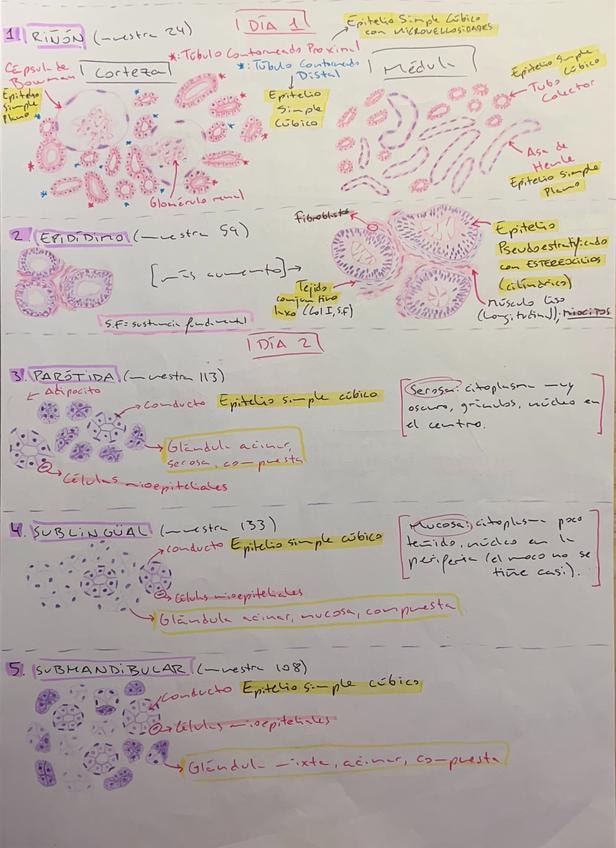 1. RIÑÓN (muestra 24)
DÍA 1
Epitelio Simple Cúbico
con MICROVELLOSIDADES
*: Túbulo Contorneado Proximal
*: Túbulo Contorneado
Distal
Cápsula de
Bowman
Corteza
Médula
Epitelio
Simple
Plano
Epitelio
Simple
Cúbico
Epitelio Simple
Cúbico
Tubo
Colector
Asa de
Henle
Epitelio Simple
Plano
Glomérulo renal
2. EPIDÍDIMO (muestra 59)
[más aumento]→
Fibroblasto
Epitelio
Pseudoestratificado
con ESTEREOCILIOS
(cilíndrico)
Tejido
conjuntivo
laxo (Col I, S.F)
Músculo liso
(Longitudinal), miocitos
S.F = sustancia fundamental
DÍA 2
3. PARÓTIDA (muestra 113)
Adipocito
conducto Epitelio simple cúbico
Glándula acinar,
serosa, compuesta
Células mioepiteliales
Serosa: citoplasma muy
oscuro, gránulos, núcleo en
el centro.
4. SUBLINGÜAL (muestra 133)
conducto Epitelio simple cúbico
Células mioepiteliales
Glándula acinar, mucosa, compuesta
Mucosa: citoplasma poco
teñido, núcleo en la
periferia (el moco no se
tiñe casi).
5. SUBMANDIBULAR (muestra 108)
Conducto Epitelio simple cúbico
Células mioepiteliales
Glándula mixta, acinar, compuesta